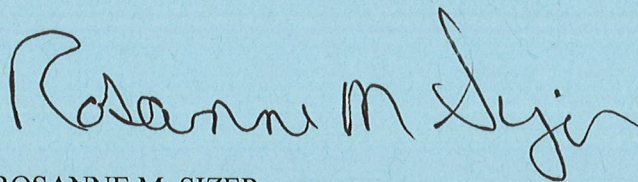 Rosanne M Sizer
ROSANNE M. SIZER